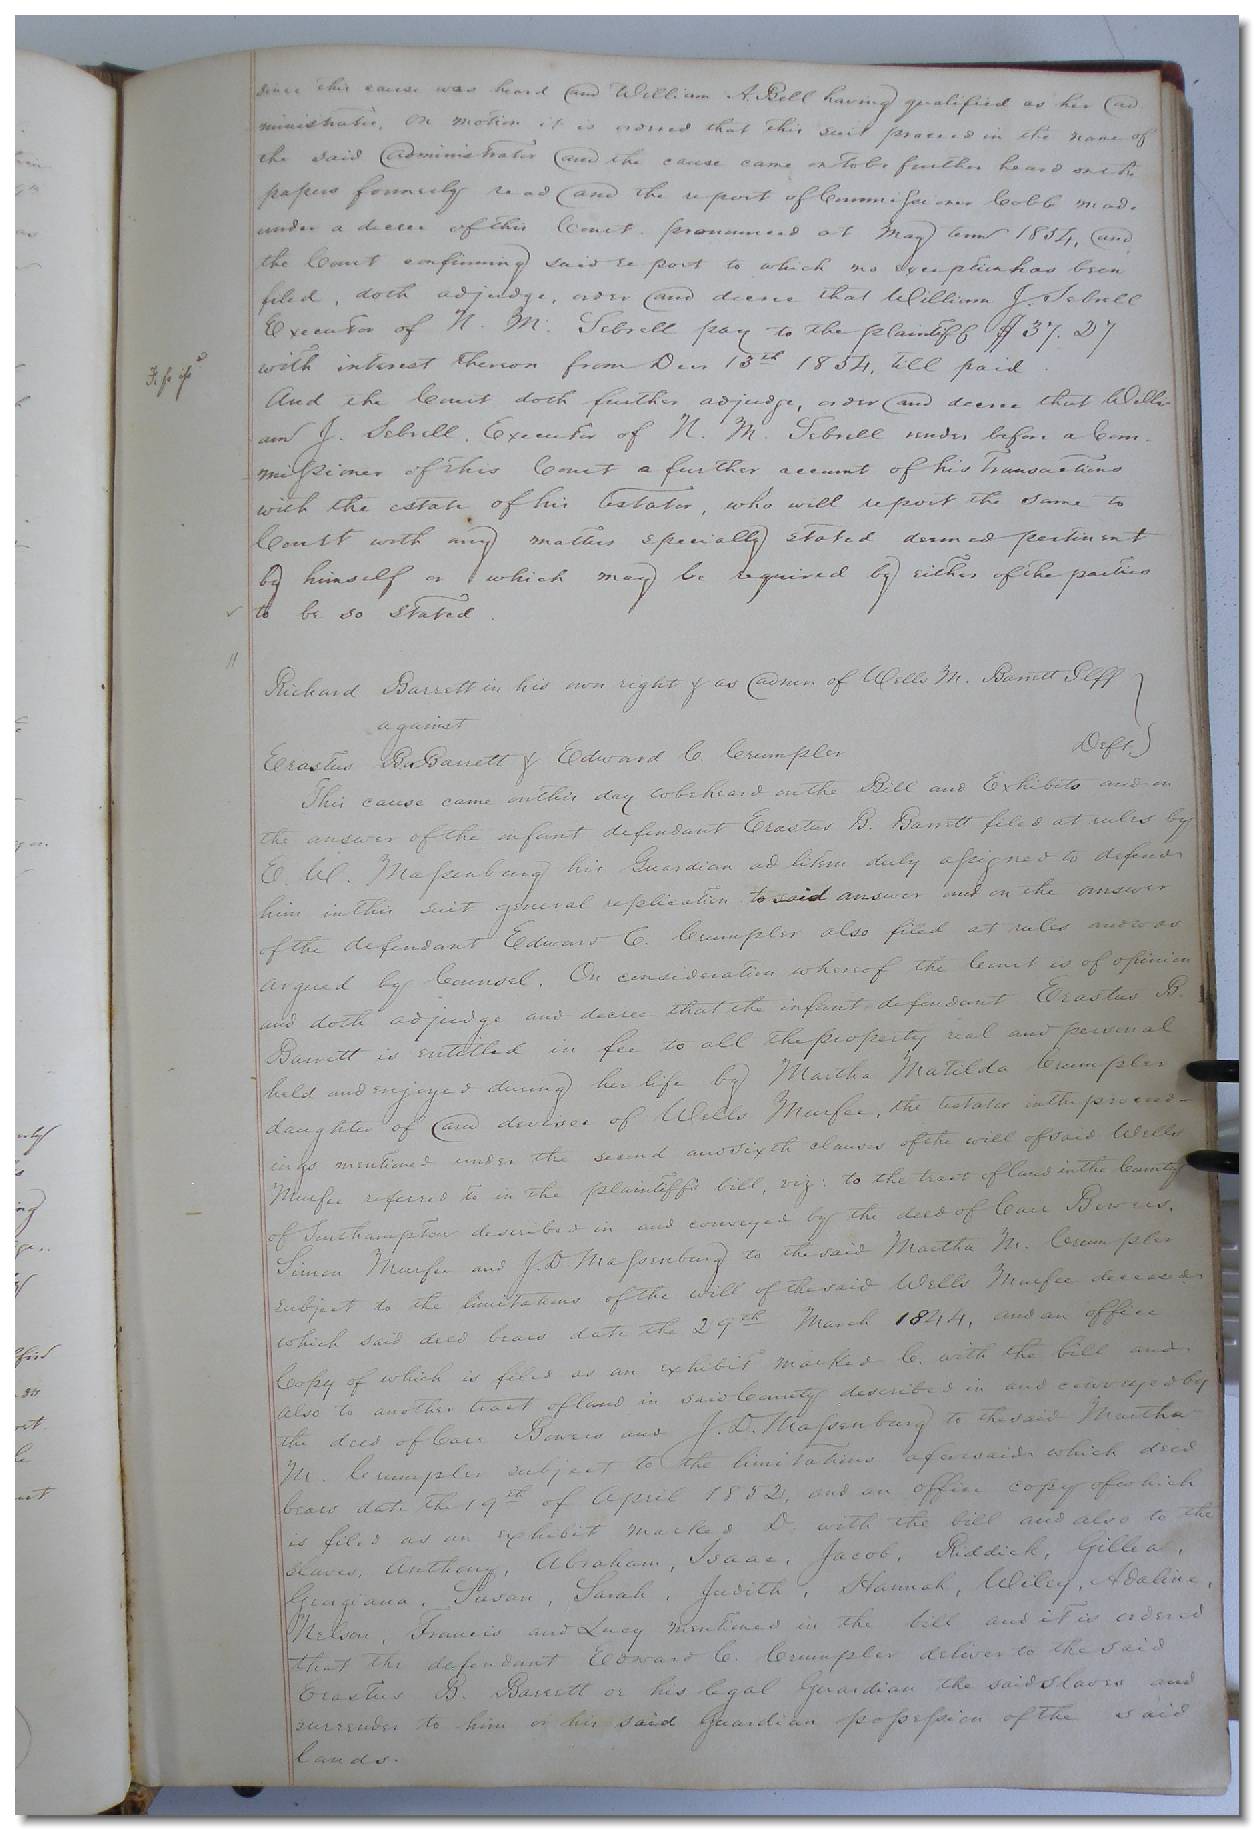 since this cause was heard and William A. Bell having qualified as her ad
ministrator, On motion it is ordered that this suit proceed in the name of
the said administrator and the cause came on to be further heard on the
papers formerly read and the report of Commissioner Cobb made
under a decree of this Court pronounced at May term 1854, and
the Court confirming said report to which no exception has been
filed, doth adjudge, order and decree that William J. Sebrell
Executor of N. M. Sebrell pay to the plaintiff $37.27
with interest thereon from Decr 13th 1854, till paid.
And the Court doth further adjudge, order and decree that Willi-
am J. Sebrell, Executor of N. M. Sebrell render before a Com-
missioner of this Court a further account of his transactions
with the estate of his testator, who will report the same to
Court with any matters specially stated deemed pertinent
by himself or which may be required by either of the parties
to be so stated.
Richard Barrett in his own right & as admr of Wells M. Barrett Plff
against
Erastus B. Barrett & Edward C Crumpler Defts
This cause came on this day to be heard on the Bill and Exhibits and on
the answer of the infant defendant Erastus B. Barrett filed at rules by
E. W. Massenburg his Guardian ad litem duly assigned to defend
him in this suit general replication to said answer and on the answer
of the defendant Edward C. Crumpler also filed at rules and was
argued by Counsel. On consideration whereof the Court is of opinion
and doth adjudge and decree that the infant defendant Erastus B.
Barrett is entitled in fee to all the property real and personal
held and enjoyed during her life by Martha Matilda Crumpler
daughter of and devisee of Wells Murfee, the testator in the proceed-
ings mentioned under the second and sixth clauses of the will of said Wells
Murfee referred to in the plaintiff's bill, viz: to the tract of land in the County
of Southampton described in and conveyed by the deed of Carr Bowers,
Simon Murfee and J. D Massenburg to the said Martha M. Crumpler
subject to the limitations of the will of the said Wells Murfee deceased
which said deed bears date the 29th March 1844, and an office
Copy of which is filed as an exhibit marked C. with the bill and
also to another tract of land in said County described in and conveyed by
the deed of Carr Bowers and J. D. Massenburg to the said Martha
M. Crumpler subject to the limitations aforesaid which deed
bears date the 19th of April 1852, and an office copy of which
is filed as an exhibit marked D. with the bill and also to the
slaves, Anthony, Abraham, Isaac, Jacob, Riddick, Gillea,
Georgiana, Susan, Sarah, Judith, Hannah, Wiley, Adaline,
Nelson, Francis and Lucy mentioned in the bill and it is ordered
that the defendant Edward C. Crumpler deliver to the said
Erastus B. Barrett or his legal Guardian the said slaves and
surrender to him or his said Guardian possession of the said
lands.